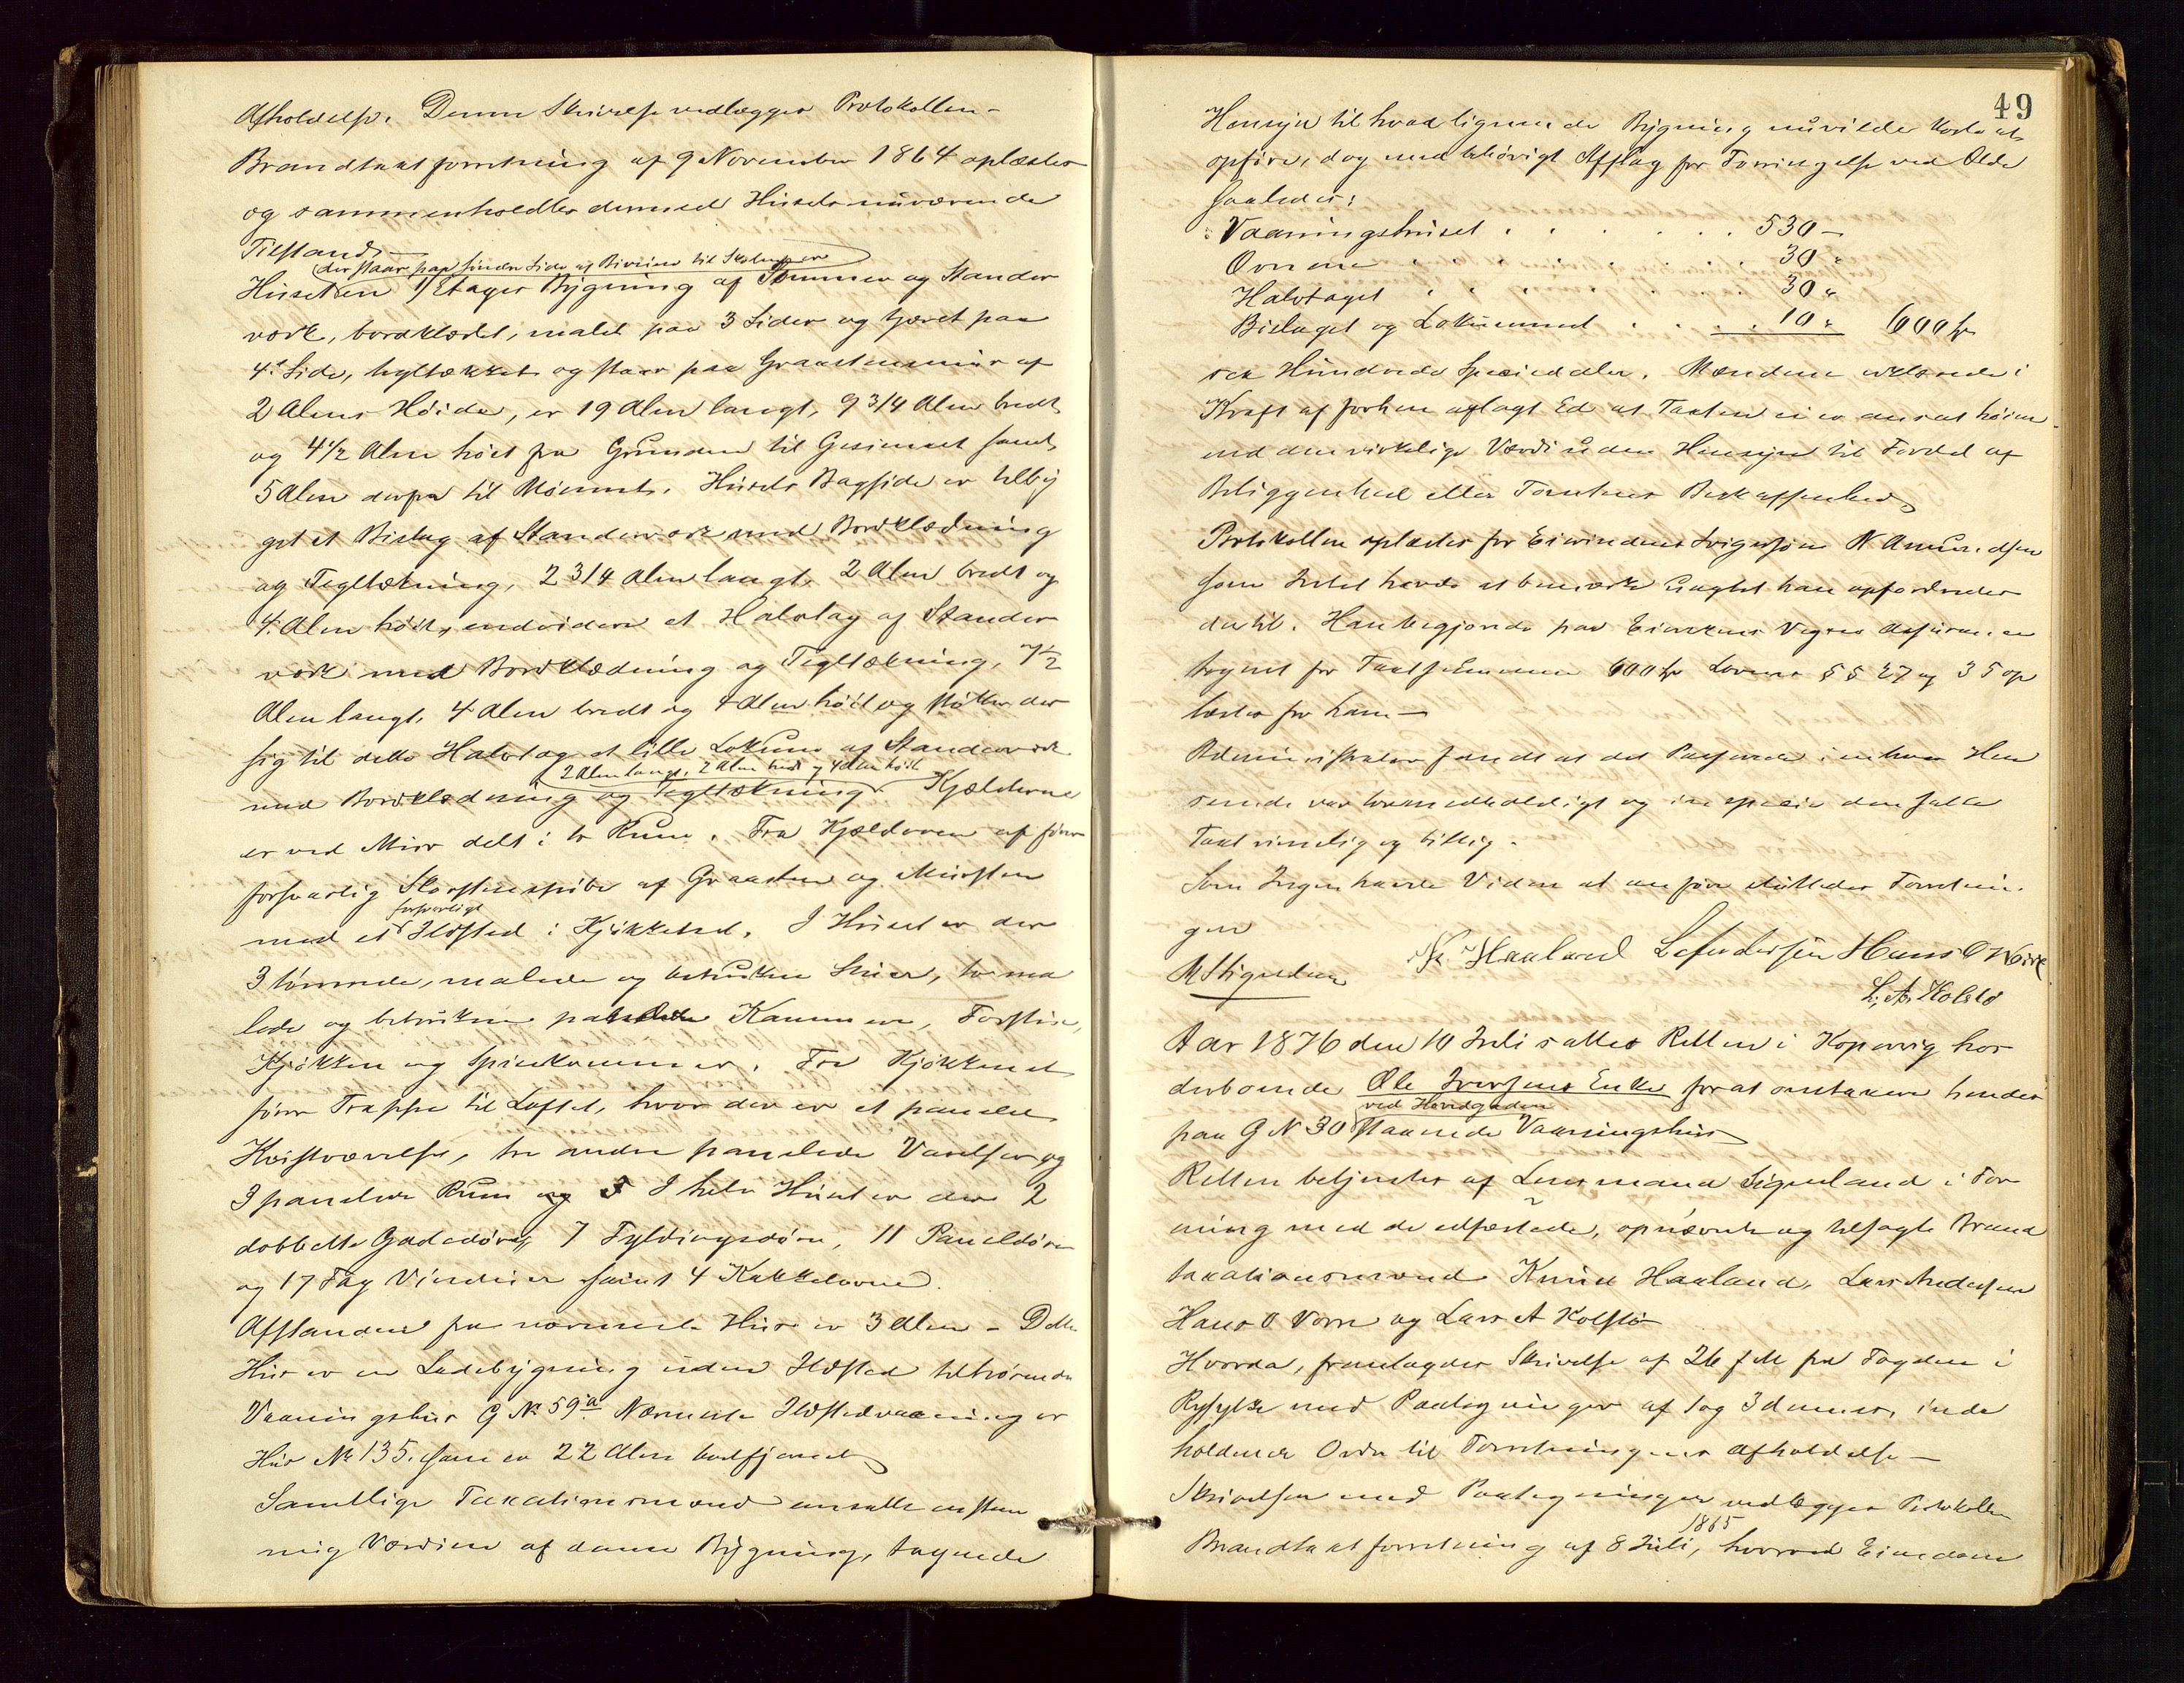 Afholdelse. Denne Skrivelse vedlægges Protokollen –
Brandtaxtforretning af 9 November 1864 oplæstes
og sammenholdtes dermed Husets nuværende
Tilstand –
der staar paa søndre Side af Veien til
Huset en 1 Etages Bygning af Tømmer og Stander
værk, bordklædt, malet paa 3 Sider og tjæret paa
4de Side, tegltækket og staar paa Graastensmur af
2 Alens Høide, er 19 Alen langt, 9 3/4 Alen bredt
og 4 1/2 Alen høit fra Grunden til Gesimset samt
5 Alen derfra til Mønnet. Husets Bagside er tilbyg
get et Bislag af Standerværk med Bordklædning
og Tegltækning, 2 3/4 Alen langt 2 Alen bredt og
4 Alen høit, endvidere et Halvtag af Stander
værk med Bordklædning og Tegltækning, 7 1/2
Alen langt, 4 Alen bredt og 4 Alen høit og støtter der
sig til dette Halvtag et lille Lokum af Standerværk
2 Alen langt, 2 Alen bredt og 4 Alen høit
med Bordklædning og Tegltækning. Kjælderne
er ved Mur delt i to Rum. Fra Kjælderen opfører
forsvarlig Skorstenspibe af Graasten og Mursten
forsvarligt
med et Ildsted i Kjøkkenet. I Huset er der
3 tømrede, malede og betrukne Stuer, to ma
lede og betrukne panelede Kammere, Forstue,
Kjøkken og Spisekammer. Fra Kjøkkenet
fører Trappe til Loftet, hvor der er et panelet
Kvistværelse, tre andre panelede Værelser og
3 panelede Rum og I hele Huset er der 2
dobbelte Gadedøre, 7 Fyldingsdøre, 11 Paneldøre
og 17 Fag Vinduer samt 4 Kakkelovne.
Afstanden fra nærmeste Hus er 3 Alen – Dette
Hus er en Ladebygning uden Ildsted tilhørende
Vaaningshus G No 59a. Nærmeste Ildstedvaaning er
Hus No 135. som er 22 Alen bortfjernet
Samtlige Taxationsmænd ansatte enstem
mig Værdien af denne Bygning, tagende
49
Hensyn til hvad lignende Bygning nu vilde koste at
opføre, dog med behørigt Afslag for Forringelse ved Ælde
saaledes:
Vaaningshuset . . . . . . 530 –
Ovnene . . . . . . . . 30 "
Halvtaget . . . . . . . . 30 "
Bislaget og Lokummet . . . . 10 " 600 Sp
sex Hundrede Speciedaler. Mændene erklærede i
Kraft af forhen aflagt Ed at Taxten ei er ansat høiere
end den virkelige Værdi uden Hensyn til Fordel af
Beliggenhed eller Tomtens Beskaffenhed
Protokollen oplæstes for Eierindens Svigersøn N Amundsen
som Intet havde at bemærke uagtet han opfordredes
dertil. Han begjærede paa Eierskens Vegne Assurance
tegnet for Taxtsummen 600 Sp Lovens §§ 27 og 35 op
læstes for ham –
Administrator fandt at det Passerede i enhver Hen
seende var lovmedholdigt og in specie den satte
Taxt rimelig og billig.
Som Ingen havde Videre at anføre sluttedes Forretnin
gen
K. Haaland L Andersen Hans O Worre
L. A. Kolstø
Aar 1876 den 10 Juli sattes Retten i Kopervig hos
derboende Ole Iversens Enke for at omtaxere hendes
ved Hovedgaden
paa G N 30 staaende Vaaningshus
Retten betjentes af Lensmand Sigveland i For
ening med de edfæstede, opnævnte og tilsagte Brand
taxationsmænd Knud Haaland, Lars Andersen
Hans O Vorre og Lars A Kolstø
Hvorda, fremlagdes Skrivelse af 26 f M fra Fogden i
Ryfylke med Paategninger af 1 og 3 dennes, inde
holdende Ordre til Forretningens Afholdelse –
Skrivelsen med Paategninger vedlægges Protokollen
1865
Brandtaxtforretning af 8 Juli, hvorved Eiendom